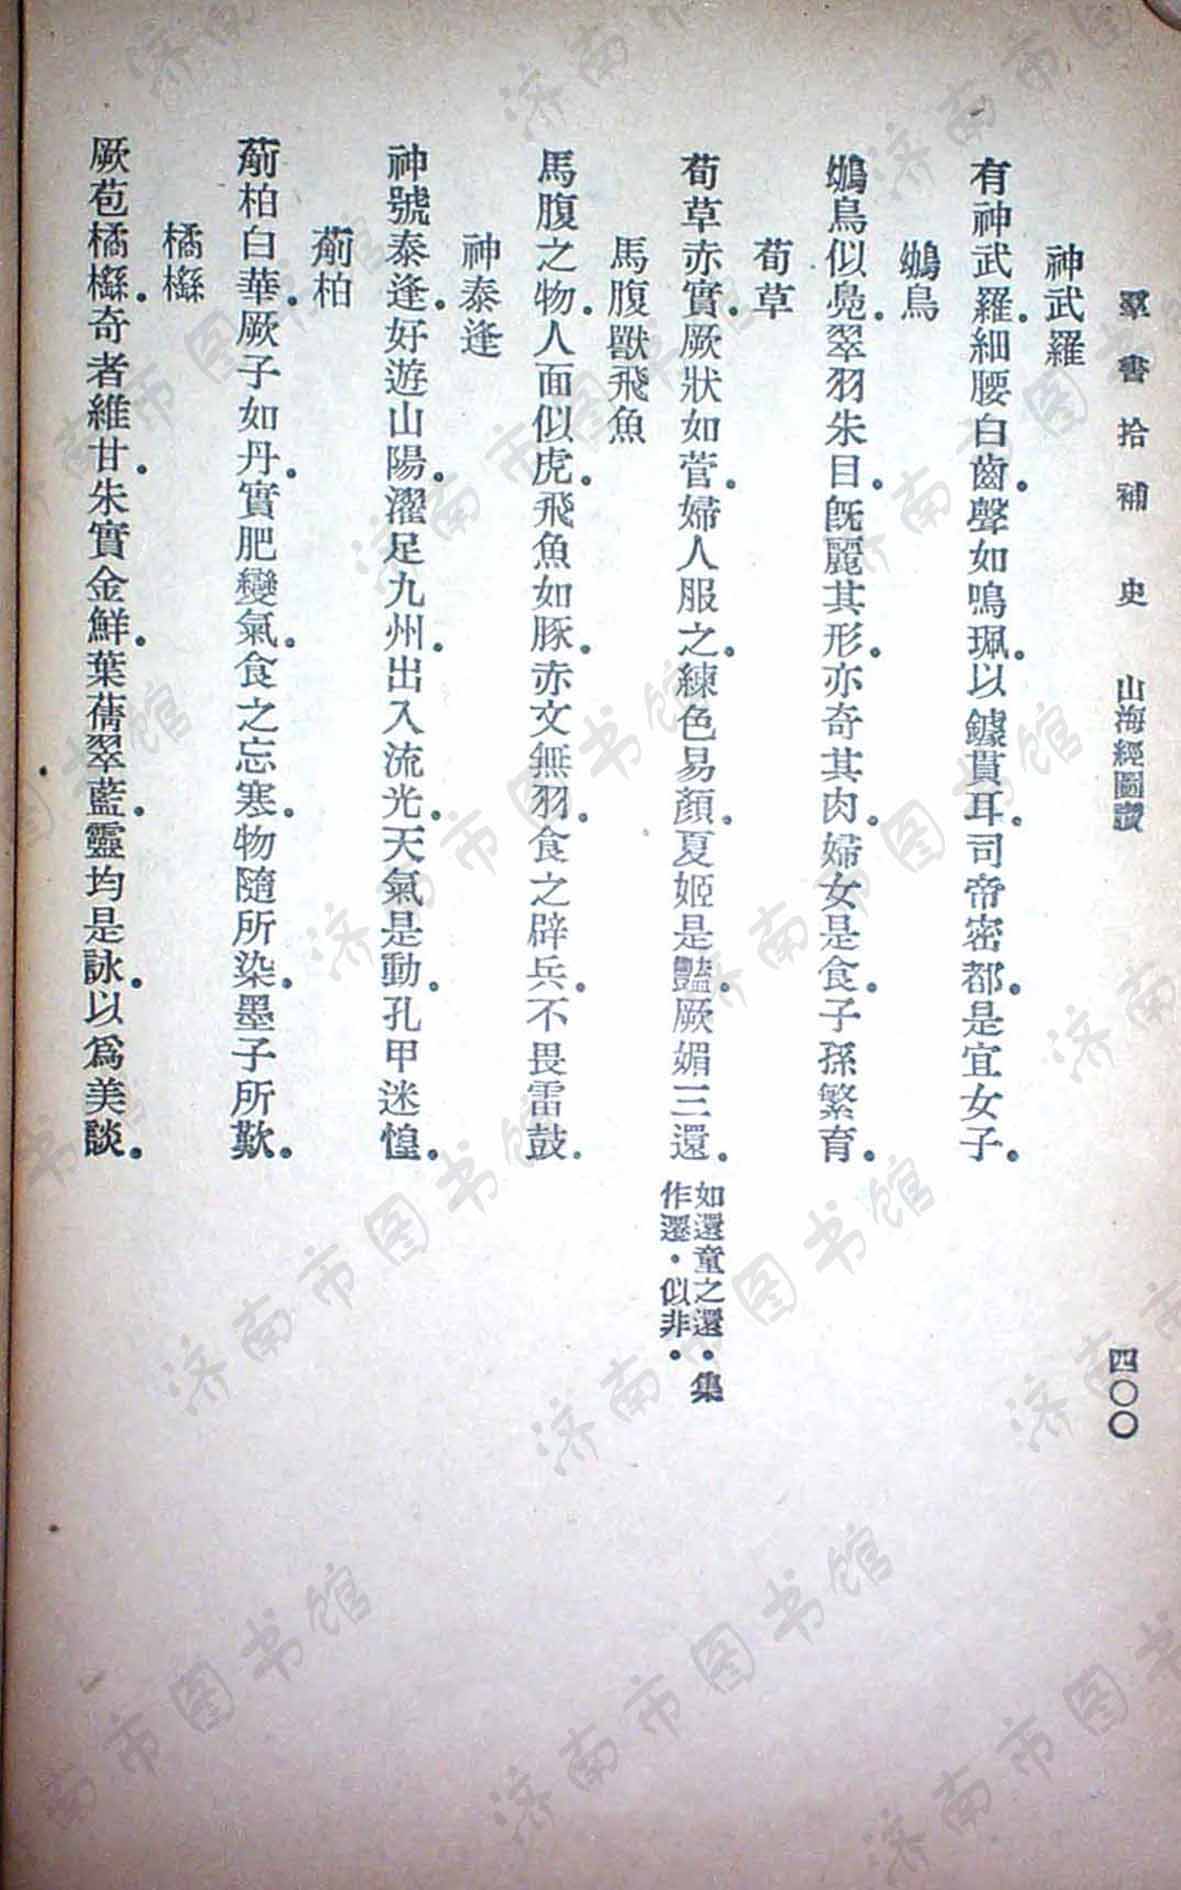 羣書拾補 史 山海經圖讚 四〇〇
神武羅
有神武羅。細腰白齒。聲如鳴珮。以鐻貫耳。司帝密都。是宜女子。
鴢鳥
鴢鳥似鳧。翠羽朱目。旣麗其形。亦奇其肉。婦女是食。子孫繁育。
荀草
荀草赤實。厥狀如菅。婦人服之。練色易顏。夏姬是豔。厥媚三還。如還童之還。集作遷。似非。
馬腹獸飛魚
馬腹之物。人面似虎。飛魚如豚。赤文無羽。食之辟兵。不畏雷鼓。
神泰逢
神號泰逢。好遊山陽。濯足九州。出入流光。天氣是動。孔甲迷惶。
蕳柏
蕳柏白華。厥子如丹。實肥變氣。食之忘寒。物隨所染。墨子所歎。
橘櫾
厥苞橘櫾。奇者維甘。朱實金鮮。葉蒨翠藍。靈均是詠。以爲美談。
济南市图书馆